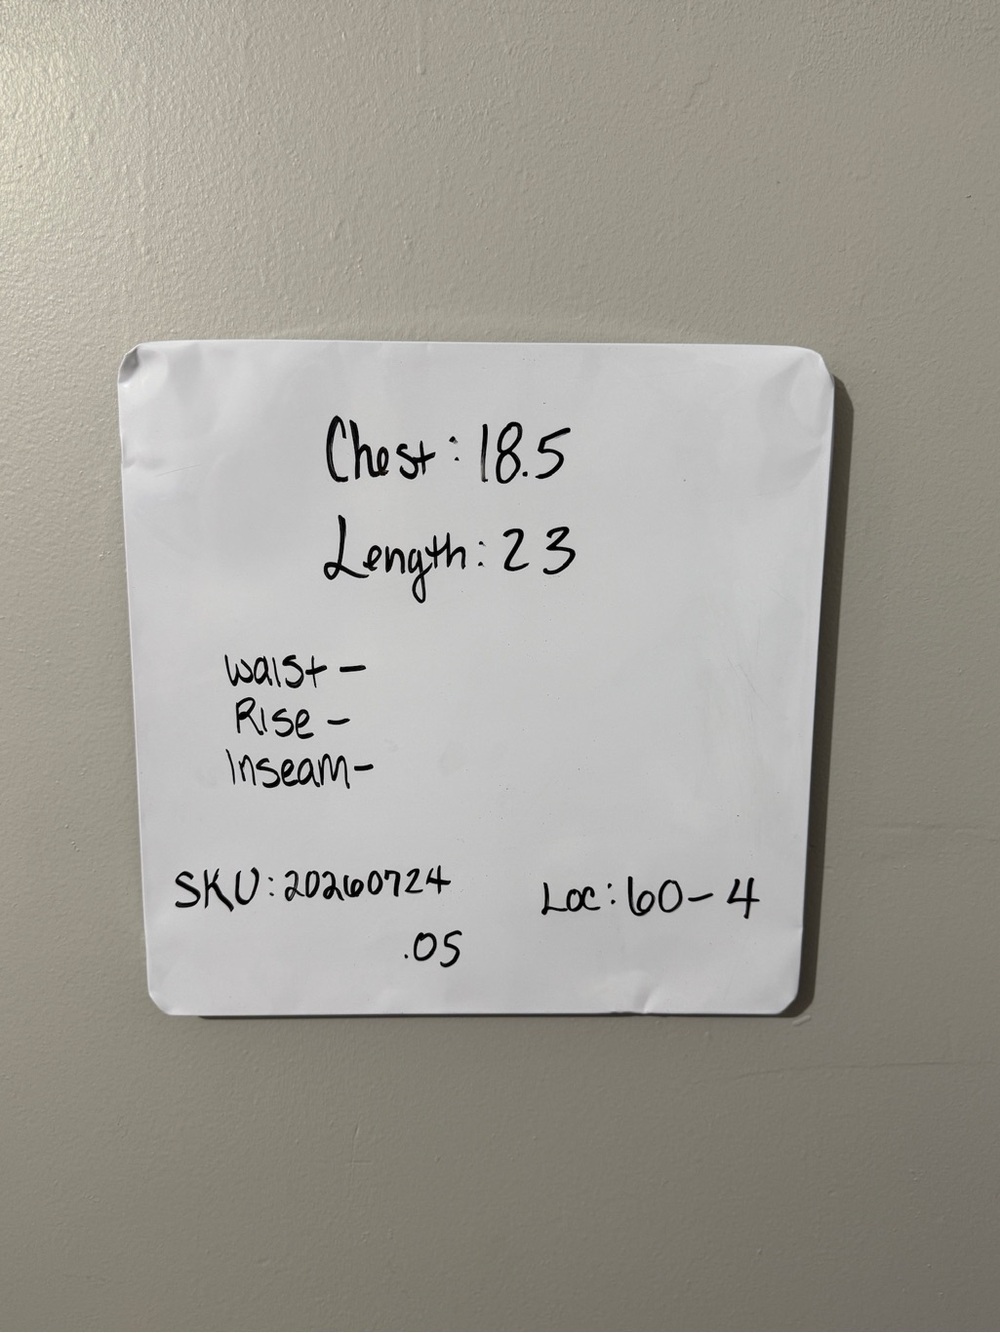 Chest: 18.5
Length: 23
Waist -
Rise -
Inseam-
SKU: 20260724
.05
Loc: 60-4